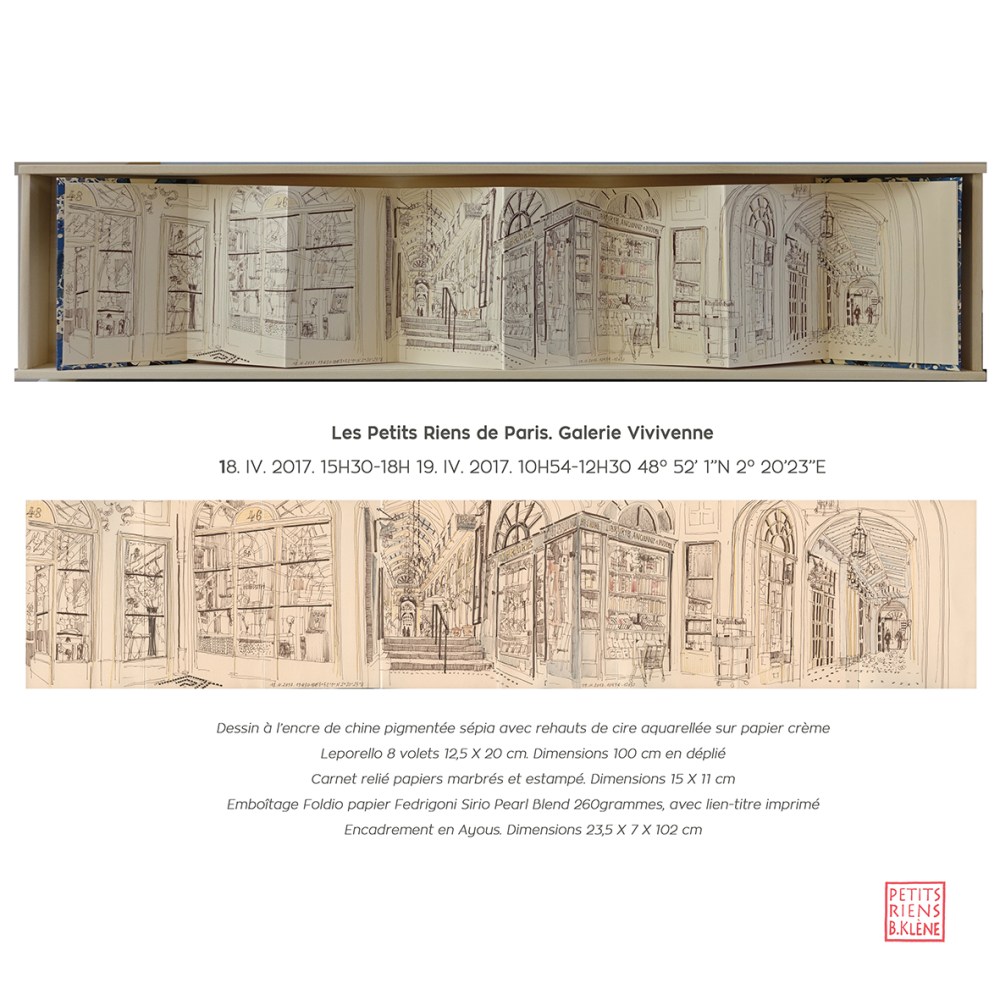 48
46
Les Petits Riens de Paris. Galerie Vivivenne
18. IV. 2017. 15H30-18H 19. IV. 2017. 10H54-12H30 48° 52’ 1”N 2° 20’23”E
48
46
Dessin à l’encre de chine pigmentée sépia avec rehauts de cire aquarellée sur papier crème
Leporello 8 volets 12,5 X 20 cm. Dimensions 100 cm en déplié
Carnet relié papiers marbrés et estampé. Dimensions 15 X 11 cm
Emboîtage Foldio papier Fedrigoni Sirio Pearl Blend 260grammes, avec lien-titre imprimé
Encadrement en Ayous. Dimensions 23,5 X 7 X 102 cm
PETITS
RIENS
B.KLÈNE